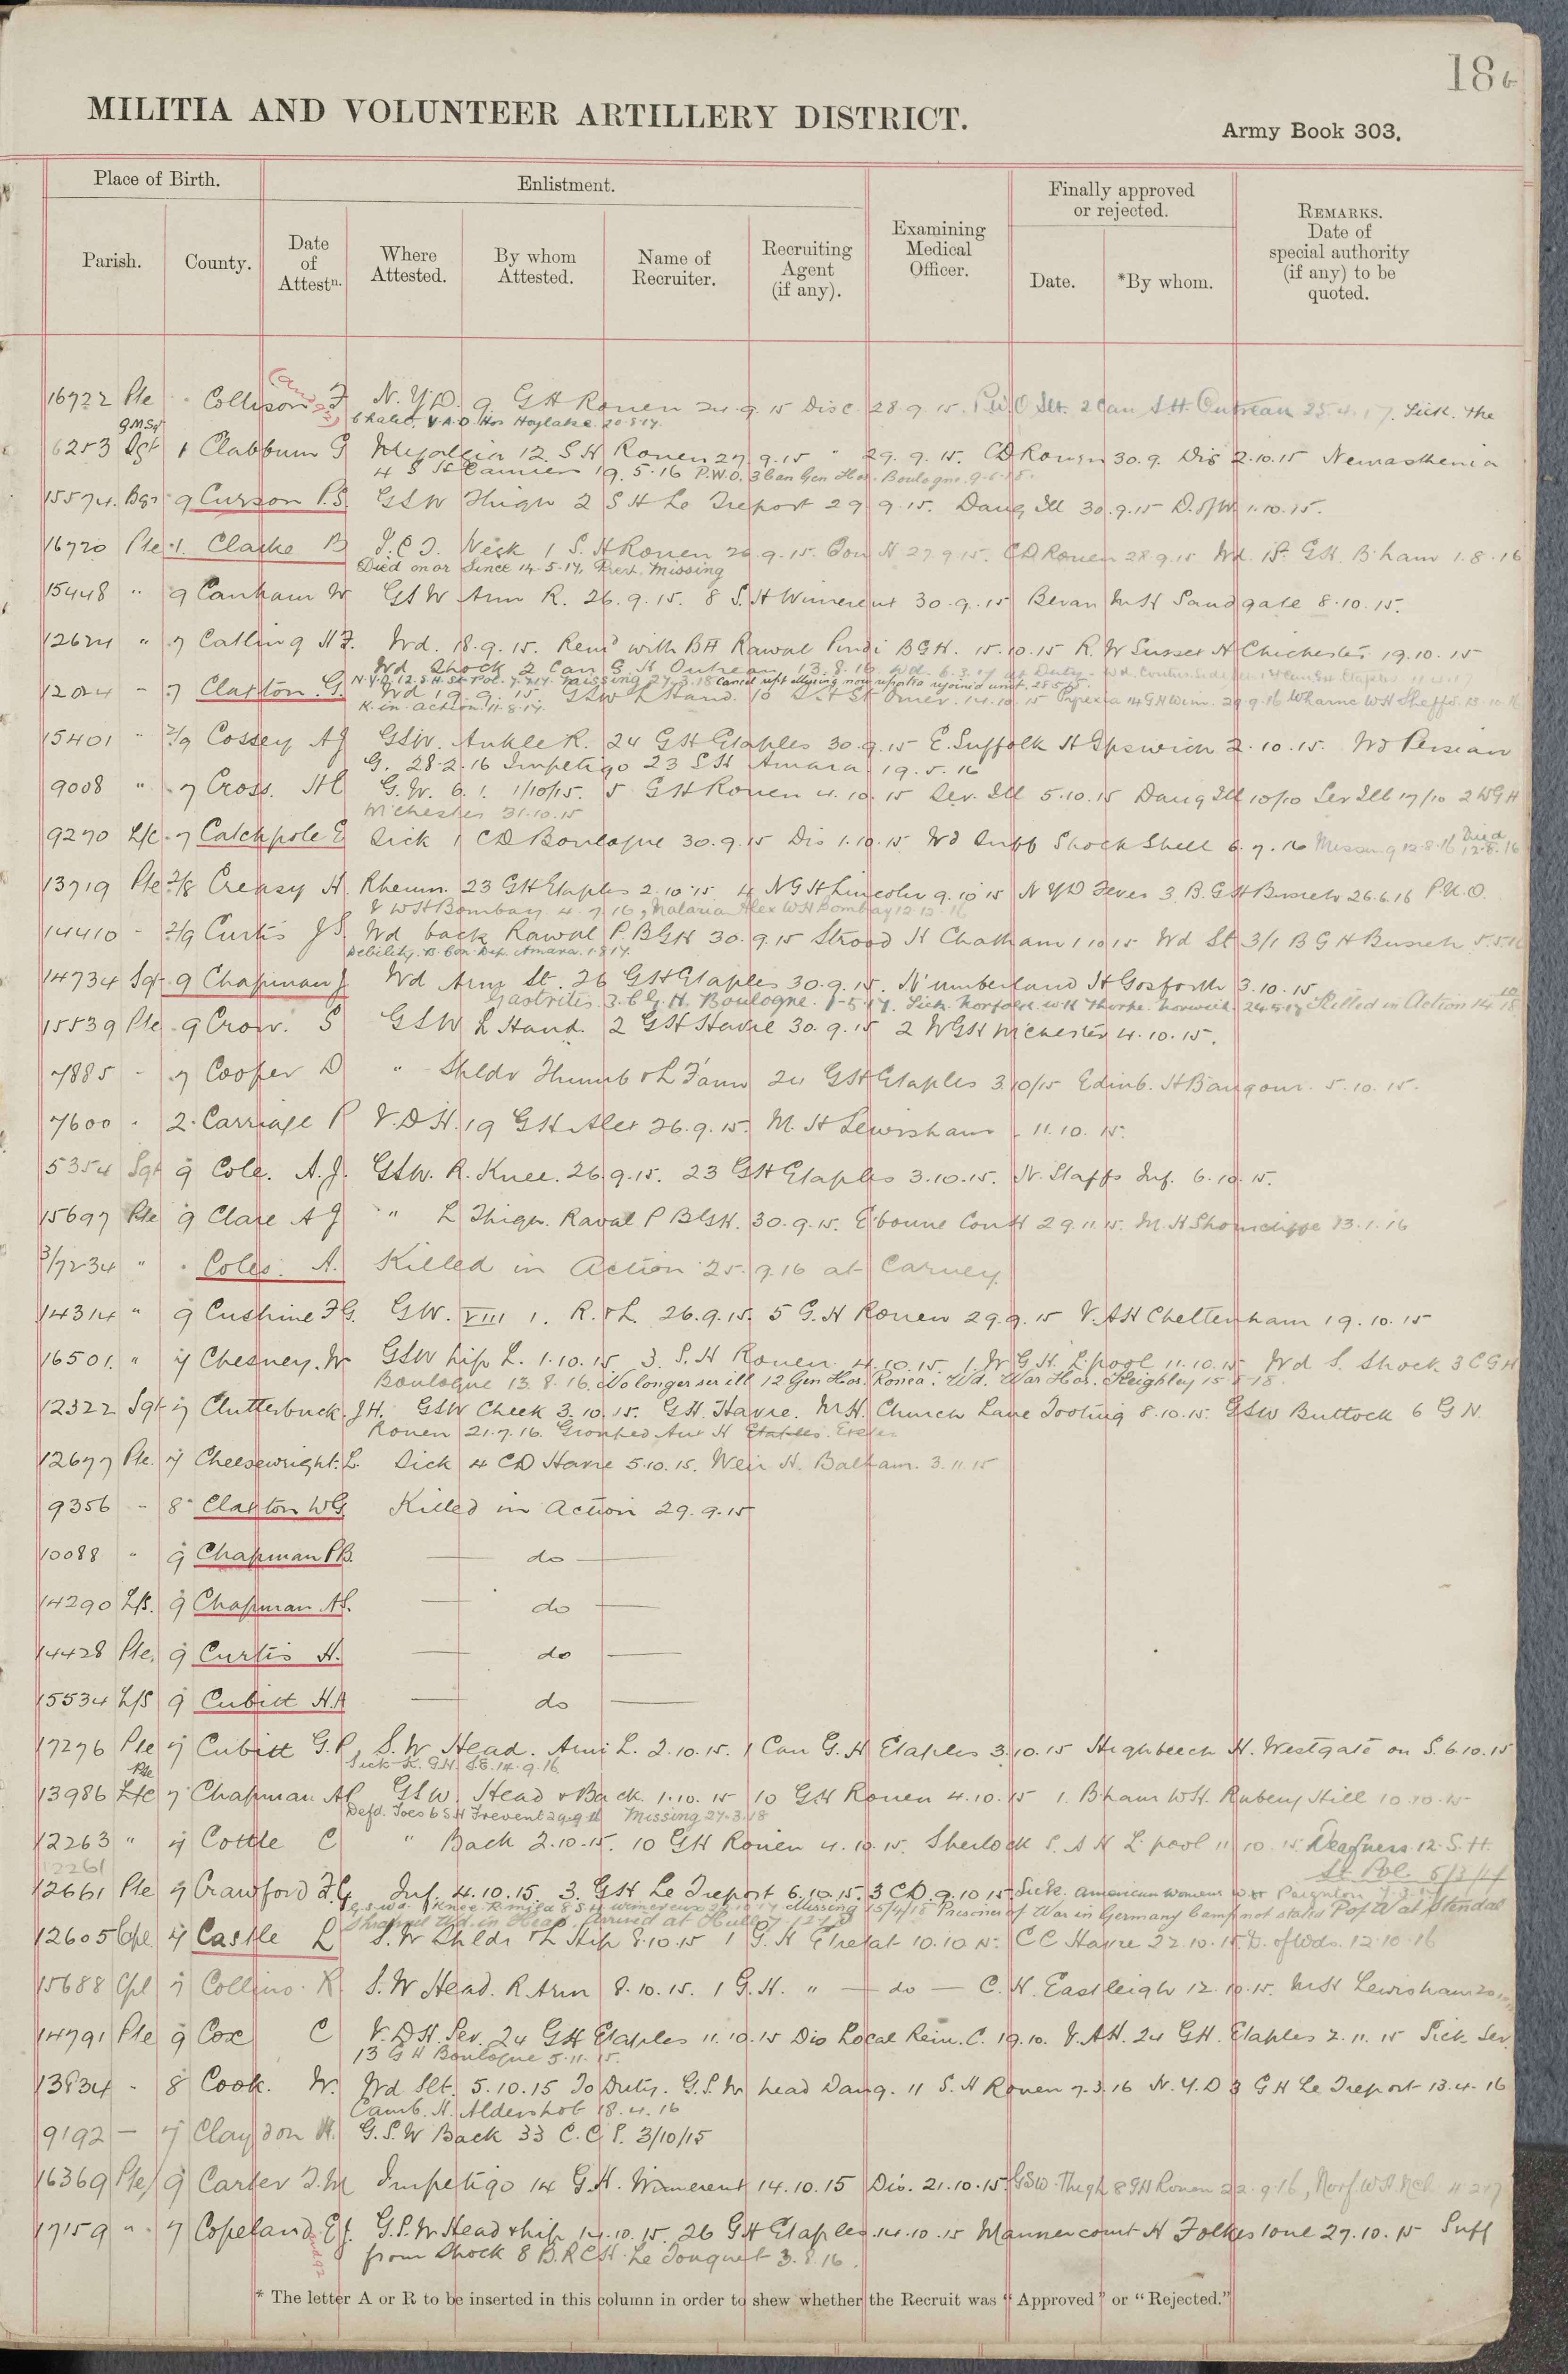 18
MILITIA AND VOLUNTEER ARTILLERY DISTRICT.
Army Book 303.
Place of Birth.
Enlistment.
Finally approved or rejected.
REMARKS. Date of special authority (if any) to be quoted.
Parish.
County.
Date of Attestn.
Where Attested.
By whom Attested.
Name of Recruiter.
Recruiting Agent (if any).
Examining Medical Officer.
Date.
*By whom.
16722 Pte Collison F N.Y.D. 9 GH Rouen 24.9.15 Disc 28.9.15. Sick. The
Chalet. V.A.D. Hos Hoylake. 20.8.17.
QMSgt
6253 Sgt 1 Clabburn G Myalgia 12 S H Rouen 27.9.15 " 29.9.15. CD Rouen 30.9. Dis 2.10.15 Neurasthenia
4 S H Camiers 19.5.16 P.W.O. 3 Can Gen Hos. Boulogne. 9.6.18.
15574. 9 Curson P.S. GSW Thigh 2 S H Le Treport 29.9.15. Dang Ill 30.9.15 D. of W. 1.10.15.
16720 Pte 1. Clarke B Neck 1 S. H Rouen 26.9.15. Con H 27.9.15. CD Rouen 28.9.15 Wd. GH. B'ham 1.8.16
Died on or Since 14.5.17, Prev. Missing
15448 " 9 Canham W GSW Arm R. 26.9.15. 8 S.H Wimereux 30.9.15 Bevan M H Sandgate 8.10.15.
12624 " 7 Catling H F. Wd. 18.9.15. Rem'd with BH Rawal Pindi BGH. 15.10.15 R. W Sussex H Chichester 19.10.15
Wd Shock 2 Can G H Outreau 13.8.16
N.Y.D. 12. S.H. St. Pol. 7.7.17. Missing 27.3.18
12024 - 7 Claxton. G. Wd 19.9.15. GSW L Hand. 10 S H St Omer. 14.10.15 Pyrexia 14 GH Wim. 29.9.16 Wharnc W H Sheff'd. 13.10.16
K. in. action. 11.8.17.
15401 " 2/9 Cossey A J GSW. Ankle R. 24 GH Etaples 30.9.15 E. Suffolk H Ipswich 2.10.15. Wd Persian
G. 28.2.16 Impetigo 23 S H Amara 19.5.16
9008 " 7 Cross. H C G.W. 6.1. 1/10/15. 5 GH Rouen 4.10.15 Ser. Ill 5.10.15 Dang Ill 10/10 Ser Ill 17/10 2 WGH
M'chester 31.10.15
9270 L/C 7 Catchpole E Sick 1 CD Boulogne 30.9.15 Dis 1.10.15 Wd Suff Shock Shell 6.7.16 Missing 12.8.16 Died 12.8.16
13719 Pte 2/8 Creasy H. Rheum. 23 GH Etaples 2.10.15 4 NGH Lincoln 9.10.15 N Y D Fever 3 B. G H Busreh 26.6.16 P.U.O.
V W H Bombay 4.7.16, Malaria Alex WH Bombay 12.12.16
14410 - 2/9 Curtis J S. Wd back Rawal P. BGH 30.9.15 Strood H Chatham 1.10.15 Wd St 3/1 B G H Busreh 5.5.16
Debility. B. Con. Dep. Amara. 1.8.17.
14734 Sgt 9 Chapman J Wd Arm St. 26 GH Etaples 30.9.15. N'umberland H Gosforth 3.10.15
Gastritis. 3. C G. H. Boulogne. 1-5-17. Sick. Norfolk W H Thorpe. Norwich. 24.5.17 Killed in Action 14.10.18
15539 Pte 9 Crow. S GSW L Hand. 2 GH Havre 30.9.15 2 WGH M'chester 4.10.15.
7885 - 7 Cooper D " Shldr Thumb & L F'arm 24 GH Etaples 3.10/15 Edinb. H Bangour. 5.10.15.
7600 . 2. Carriage P V.D H. 19 GH Alex 26.9.15. M. H Lewisham . 11.10.15.
5354 Sgt 9 Cole. A.J. GSW. R. Knee. 26.9.15. 23 GH Etaples 3.10.15. N. Staffs Inf. 6.10.15.
15697 Pte 9 Clare A J " L Thigh. Rawal P BGH. 30.9.15. E'bourne Con H 29.11.15. M. H Shorncliffe 13.1.16
3/7234 " . Coles. A. Killed in Action 25.9.16 at Carnoy.
14314 " 9 Cushine F G. GW. VIII 1. R. & L. 26.9.15. 5 G.H Rouen 29.9.15 V.AH Cheltenham 19.10.15
16501. " 7 Chesney. W GSW hip L. 1.10.15 3. S.H Rouen 4.10.15. 1. W G H. L'pool 11.10.15 Wd S. Shock. 3 C G H
Boulogne 13.8.16. No longer ser ill 12 Gen Hos. Rouen. Wd. War Hos. Keighley
12322 Sgt 7 Clutterbuck. J H. GSW Cheek 3.10.15. GH. Havre. M H. Church Lane Tooting 8.10.15. GSW Buttock 6 G H.
Rouen 21.7.16. Etaples. Exeter.
12677 Pte. 7 Cheesewright. L. Sick 4 CD Havre 5.10.15. Weir H. Balham. 3.11.15
9356 - 8 Claxton W G. Killed in Action 29.9.15
10088 " 9 Chapman P B. — do —
14290 L/S. 9 Chapman A S. — do —
14428 Pte. 9 Curtis H. — do —
15534 L/S 9 Cubitt H.A — do —
17276 Pte 7 Cubitt G.P. S.W Head. Arm L. 2.10.15. 1 Can G. H Etaples 3.10.15 Highbeech H. Westgate on S. 6.10.15
Sick K. G.H. S.E. 14.9.16
Pte
13986 L/C 7 Chapman A P GSW. Head & Back 1.10.15 10 GH Rouen 4.10.15 1. B'ham WH. Rubery Hill 10.10.15
Defd. Toes 6 S H Frevent 29.9.16 Missing 27.3.18
12263 " 7 Cottle C " Back 2.10.15. 10 GH Rouen 4.10.15. Sherlock S. A H L'pool 11.10.15 Deafness. 12 S.H.
12261 St. Pol. 5/3/17
12661 Pte 7 Crawford F.G. Inf. 4.10.15. 3. GH Le Treport 6.10.15. 3 CD. 9.10.15 Sick. American Womens W H Paignton
Missing 15/4/18 Prisoner of War in Germany Camp not stated P of W at Stendal
Shrapnel Wd. in Head. Arrived at Hull
12605 Cpl 7 Castle L S.W Shldr & L Hip 8.10.15 1 G. H Etretat 10.10.15. CC Havre 22.10.15. D. of Wds. 12.10.16
15688 Cpl 7 Collins. R. S.W Head. R Arm 8.10.15. 1 G.H. " — do — C. H. Eastleigh 12.10.15. MH Lewisham
14791 Pte 9 Cox C V.D H. Sev. 24 GH Etaples 11.10.15 Dis Local Rein. C. 19.10. V.AH. 24 GH. Etaples 2.11.15 Sick Sev.
13 G H Boulogne 5.11.15.
13834 - 8 Cook. W. Wd Slt. 5.10.15 To Duty. G.S.W head Dang. 11 S.H Rouen 7.3.16 N.Y.D 3 GH Le Treport 13.4.16
Camb. H. Aldershot 18.4.16
9192 — 7 Claydon H. G.S.W Back 33 C.C.S. 3/10/15
16369 Pte 9 Carter F.M Impetigo 14 G.H. Wimereux 14.10.15 Dis. 21.10.15. GSW. Thigh 8 GH Rouen 22.9.16,
17159 " 7 Copeland E J. G.S.W Head & hip 14.10.15. 26 GH Etaples 14.10.15 Mannercourt H Folkestone 27.10.15 Suff
from Shock 8 B.R C H. Le Touquet 3.8.16.
* The letter A or R to be inserted in this column in order to shew whether the Recruit was "Approved" or "Rejected."